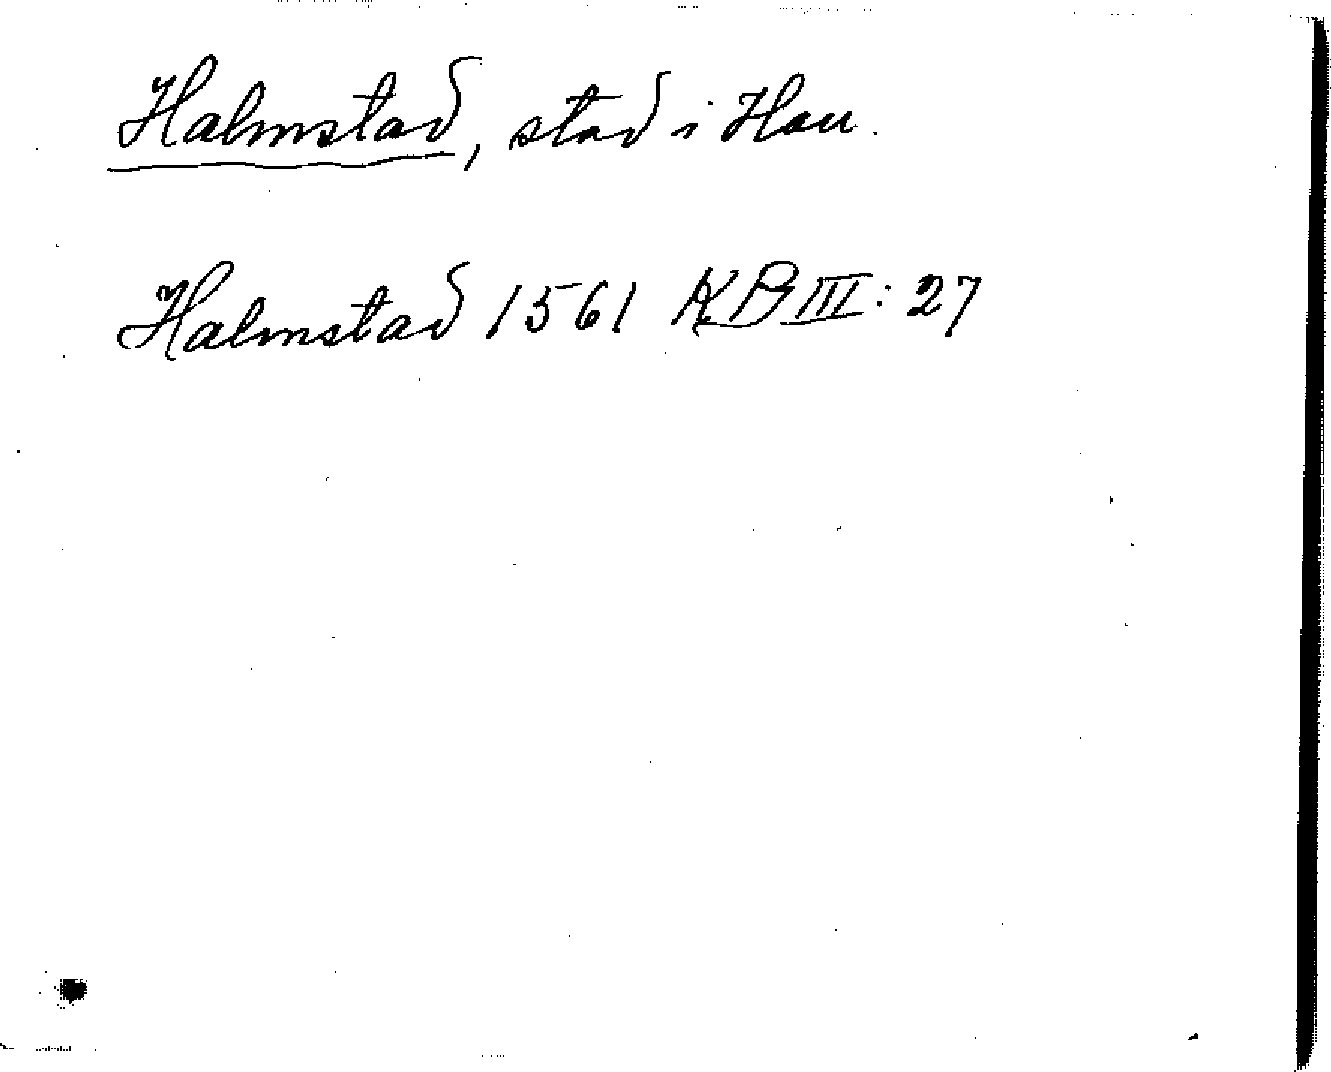 Halmstad, stad i Hall.
Halmstad 1561 KB III: 27